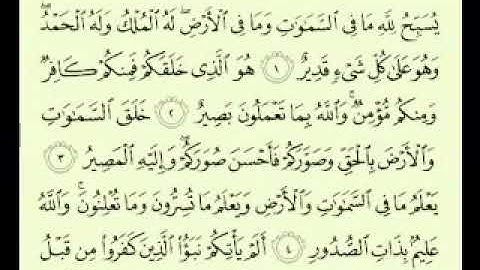 يُسَبِّحُ لِلَّهِ مَا فِي السَّمَاوَاتِ وَمَا فِي الْأَرْضِ ۖ لَهُ الْمُلْكُ وَلَهُ الْحَمْدُ ۖ
وَهُوَ عَلَىٰ كُلِّ شَيْءٍ قَدِيرٌ ١ هُوَ الَّذِي خَلَقَكُمْ فَمِنكُمْ كَافِرٌ
وَمِنكُم مُّؤْمِنٌ ۚ وَاللَّهُ بِمَا تَعْمَلُونَ بَصِيرٌ ٢ خَلَقَ السَّمَاوَاتِ
وَالْأَرْضَ بِالْحَقِّ وَصَوَّرَكُمْ فَأَحْسَنَ صُوَرَكُمْ ۖ وَإِلَيْهِ الْمَصِيرُ ٣
يَعْلَمُ مَا فِي السَّمَاوَاتِ وَالْأَرْضِ وَيَعْلَمُ مَا تُسِرُّونَ وَمَا تُعْلِنُونَ ۚ وَاللَّهُ
عَلِيمٌ بِذَاتِ الصُّدُورِ ٤ أَلَمْ يَأْتِكُمْ نَبَأُ الَّذِينَ كَفَرُوا مِن قَبْلُ